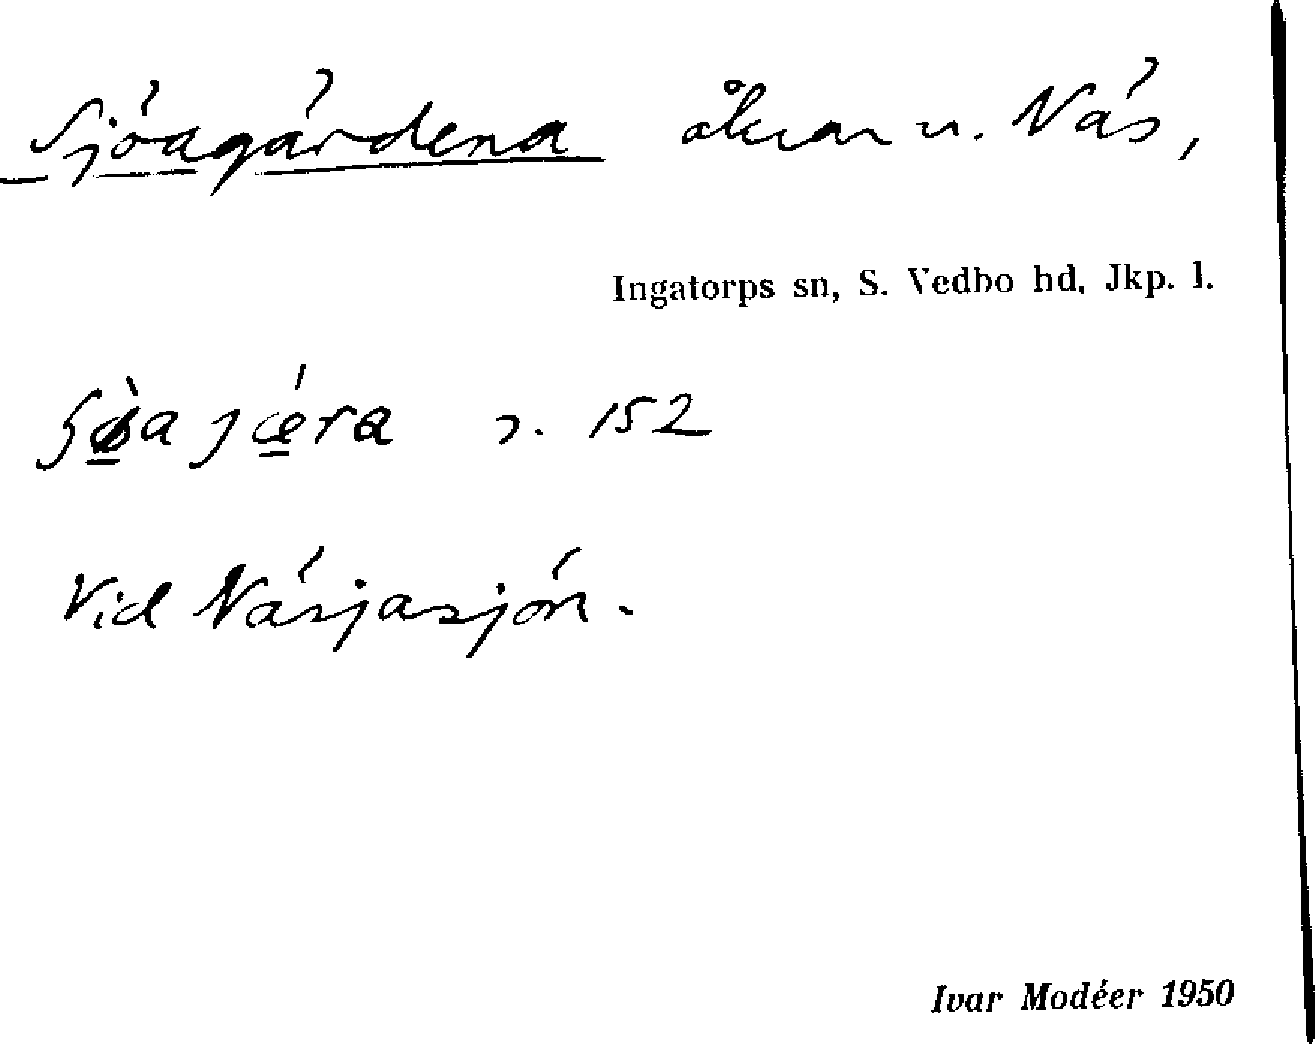 Sjöagärdena åkrar u. Näs,
Ingatorps sn, S. Vedbo hd, Jkp. l.
s. 152
Vid Näsjasjön.
Ivar Modéer 1950